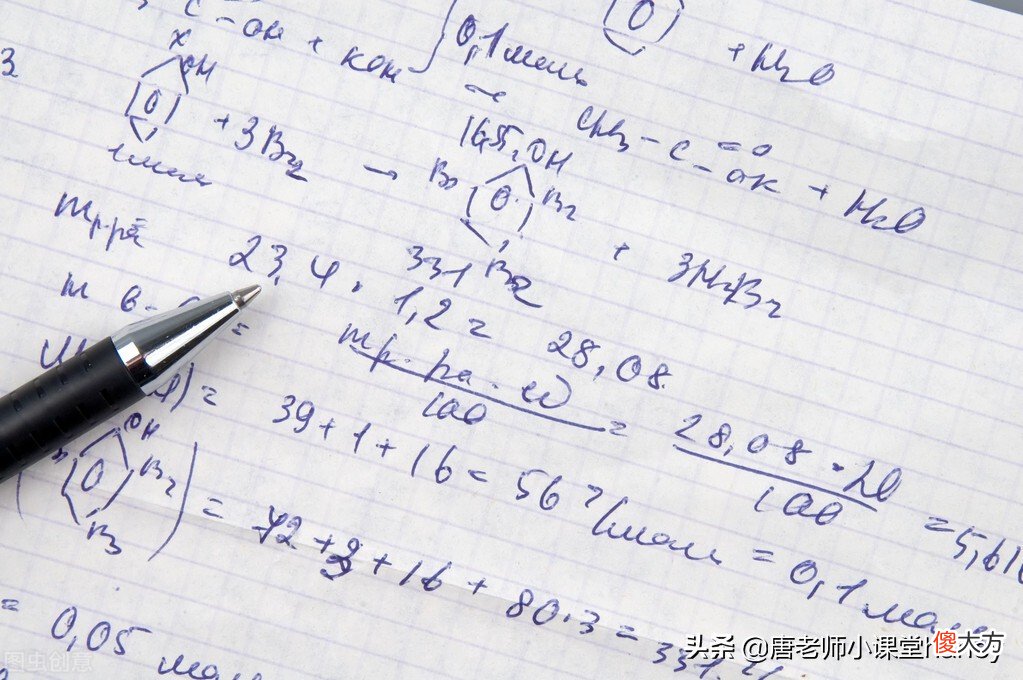 + H₂O
C - OH + KOH 0,1 моль
3
OH
+ 3Br₂ → 165, OH
CH₃ - C = O - OK + H₂O
1 моль
Br Br
331 Br
+ 3HBr
m р-ра 23,4 · 1,2 = 28,08
m в-ва = m р-ра · ω / 100 = 28,08 · 20 / 100 = 5,616
) = 39 + 1 + 16 = 56 г/моль = 0,1 моль
OH Br Br = 72 + 3 + 16 + 80·3 = 331
= 0,05 моль
图虫创意
头条 @唐老师小课堂hancy
傻大方